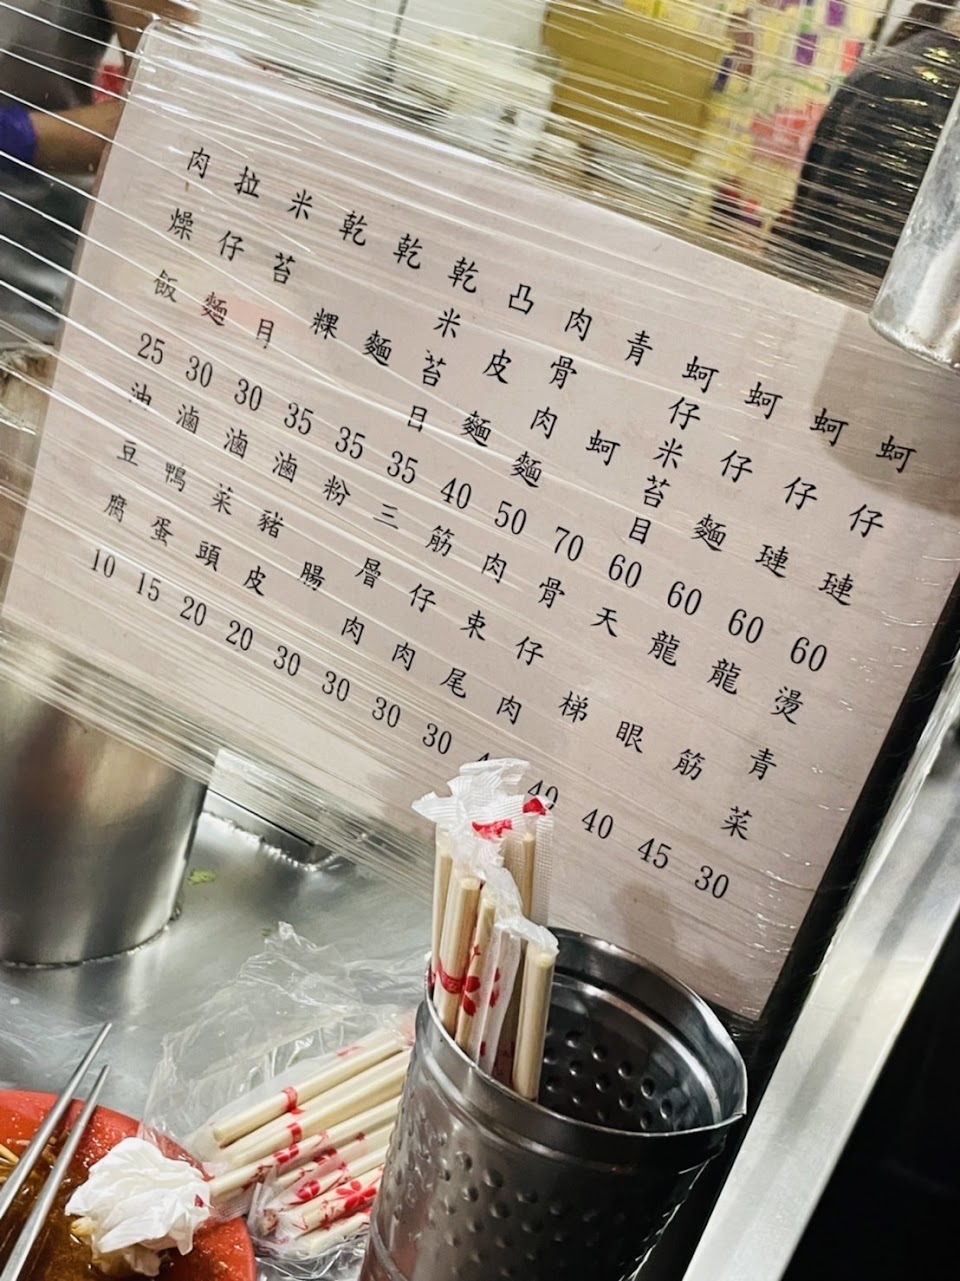 肉燥飯 25
拉仔麵 30
米苔目 30
乾粿 35
乾麵 35
乾米苔目 35
凸皮麵 40
肉骨肉麵 50
青蚵 70
蚵仔米苔目 60
蚵仔麵 60
蚵仔璉 60
蚵仔璉 60
油豆腐 10
滷鴨蛋 15
滷菜頭 20
滷豬皮 20
粉腸 30
三層肉 30
筋仔肉 30
肉束尾 30
骨仔肉
天梯 40
龍眼 40
龍筋 45
燙青菜 30